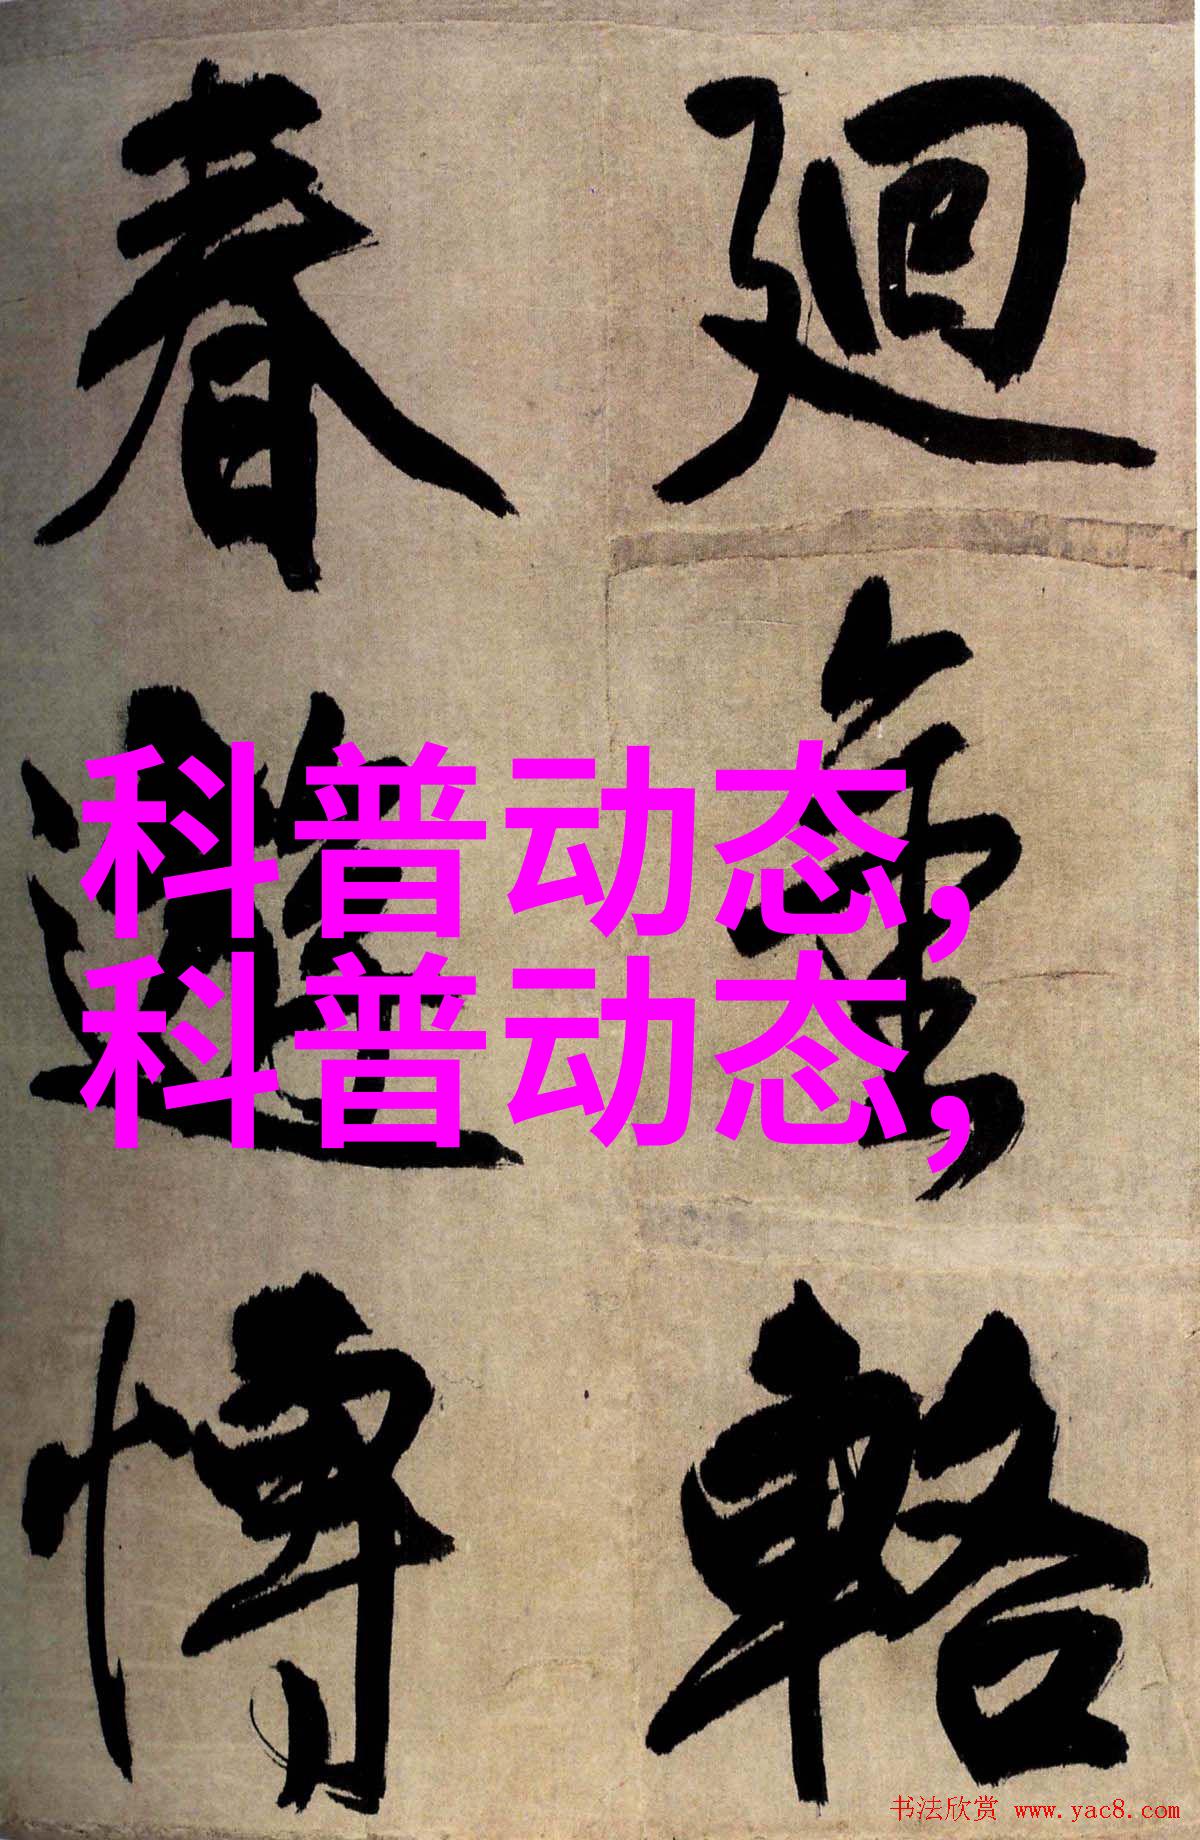 廻金輅
春遊博
科普动态,
科普动态,
书法欣赏 www.yac8.com